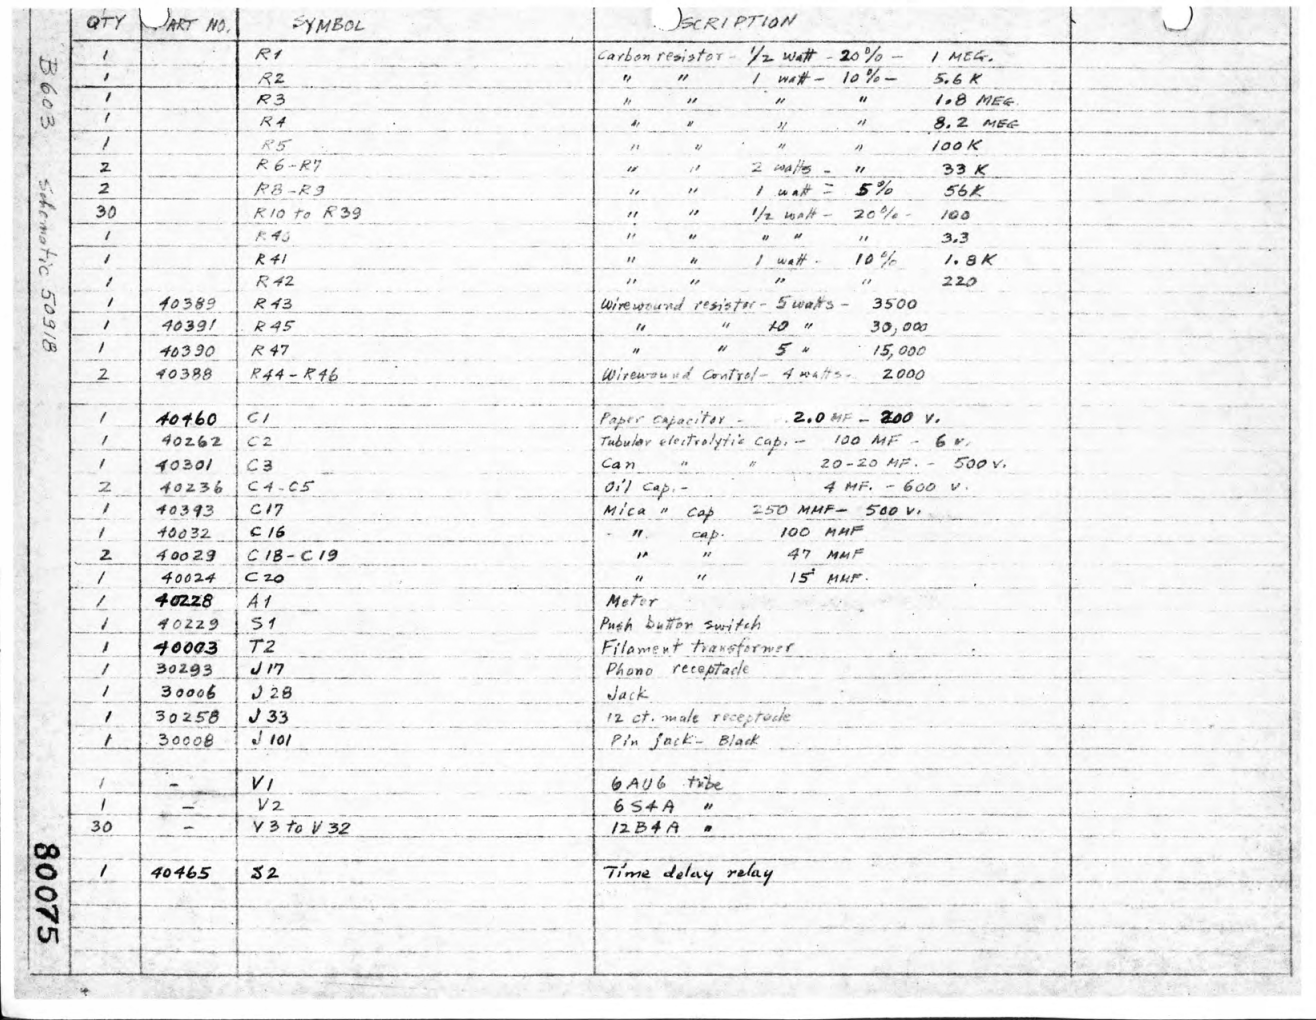 QTY ART NO. SYMBOL SCRIPTION
1 R1 Carbon resistor - 1/2 watt - 20% - 1 MEG.
1 R2 " " 1 watt - 10% - 5.6 K
1 R3 " " " " 1.8 MEG.
1 R4 " " " " 8.2 MEG
1 R5 " " " " 100 K
2 R6-R7 " " 2 watts - " 33 K
2 R8-R9 " " 1 watt - 5% 56K
30 R10 to R39 " " 1/2 watt - 20% - 100
1 R40 " " " " " 3.3
1 R41 " " 1 watt - 10% 1.8K
1 R42 " " " " 220
1 40389 R43 Wirewound resistor - 5 watts - 3500
1 40391 R45 " " 10 " 30,000
1 40390 R47 " " 5 " 15,000
2 40388 R44-R46 Wirewound Control - 4 watts - 2000
1 40460 C1 Paper capacitor - 2.0 MF - 200 V.
1 40262 C2 Tubular electrolytic cap. - 100 MF - 6 v.
1 40301 C3 Can " " 20-20 MF. - 500 v.
2 40236 C4-C5 Oil Cap. - 4 MF. - 600 v.
1 40393 C17 Mica " cap 250 MMF - 500 v.
1 40032 C16 - " cap. 100 MMF
2 40029 C18-C19 " " 47 MMF
1 40024 C20 " " 15 MMF.
1 40228 A1 Meter
1 40229 S1 Push button switch
1 40003 T2 Filament transformer
1 30293 J17 Phono receptacle
1 30006 J28 Jack
1 30258 J33 12 ct. male receptacle
1 30008 J101 Pin jack - Black
1 - V1 6AU6 tube
1 - V2 6S4A "
30 - V3 to V32 12B4A "
1 40465 S2 Time delay relay
B603 Schematic 50918
80075